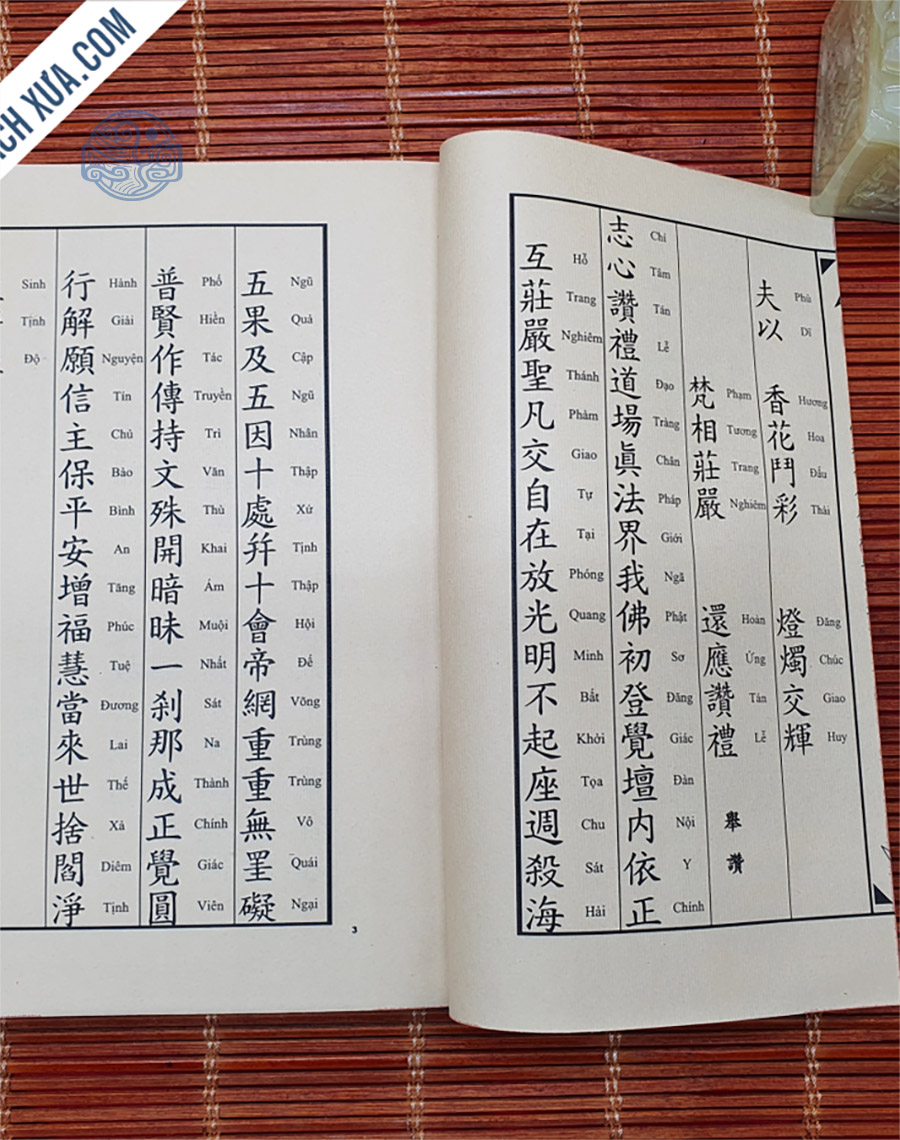 ÍCH XƯA.COM
夫以 香花鬥彩 燈燭交輝
Phù Dĩ Hương Hoa Đấu Thái Đăng Chúc Giao Huy
梵相莊嚴 還應讚禮 舉讚
Phạm Tương Trang Nghiêm Hoàn Ứng Tán Lễ
志心讚禮道場眞法界我佛初登覺壇内依正
Chí Tâm Tán Lễ Đạo Tràng Chân Pháp Giới Ngã Phật Sơ Đăng Giác Đàn Nội Y Chính
互莊嚴聖凡交自在放光明不起座週殺海
Hỗ Trang Nghiêm Thánh Phàm Giao Tự Tại Phóng Quang Minh Bất Khởi Tọa Chu Sát Hải
五果及五因十處并十會帝網重重無罣礙
Ngũ Quả Cập Ngũ Nhân Thập Xứ Tịnh Thập Hội Đế Võng Trùng Trùng Vô Quái Ngại
普賢作傳持文殊開暗昧一刹那成正覺圓
Phổ Hiền Tác Truyền Trì Văn Thù Khai Ám Muội Nhất Sát Na Thành Chính Giác Viên
行解願信主保平安增福慧當來世捨閻淨
Hành Giải Nguyện Tín Chủ Bảo Bình An Tăng Phúc Tuệ Đương Lai Thế Xả Diêm Tịnh
Sinh Tịnh Độ
3